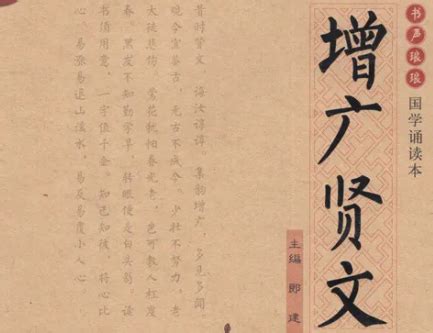 书声琅琅
国学诵读本
增广贤文
主编 郎建
昔时贤文，诲汝谆谆。集韵增广，多见多闻。
观今宜鉴古，无古不成今。少壮不努力，老
大徒悲伤。莺花犹怕春光老，岂可教人枉度
春。黑发不知勤学早，转眼便是白头翁。读
书须用意，一字值千金。知己知彼，将心比
心。易涨易退山溪水，易反易覆小人心。